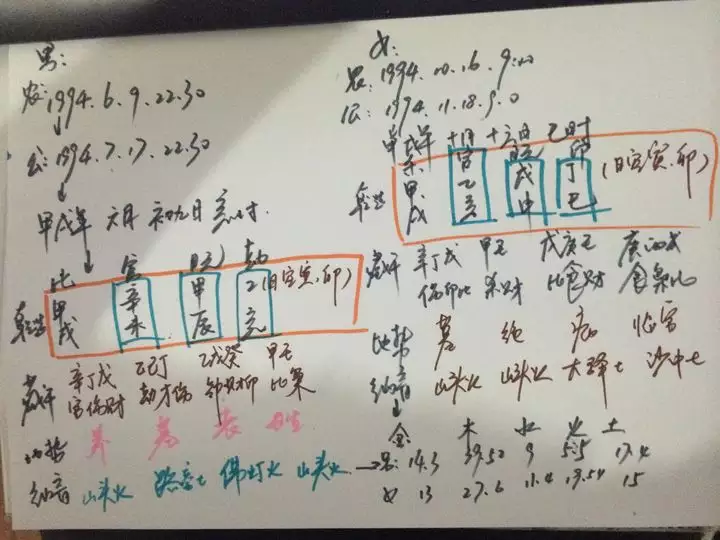 男:
农:1994.6.9.22.30
公:1994.7.17.22.30
甲戌年 六月 初九日 亥时
比 官 日元 劫
乾造 甲戌 辛未 甲辰 乙亥 (日空寅、卯)
藏干 辛丁戊 乙己丁 乙戊癸 甲壬
官伤财 劫才伤 劫财印 比枭
地势 养 墓 衰 长生
纳音 山头火 路旁土 佛灯火 山头火
女:
农:1994.10.16.9:00
公:1994.11.18.9.0
甲戌年 十月 十六日 巳时
杀 官 日元 印
甲戌 乙亥 戊申 丁巳 (日空寅、卯)
藏干 辛丁戊 甲壬 戊庚壬 庚丙戊
伤印比 杀财 比食财 食枭比
地势 墓 绝 病 临官
纳音 山头火 山头火 大驿土 沙中土
金 木 水 火 土
男:14.3 39.52 9 17.4
女 13 27.6 11.4 15